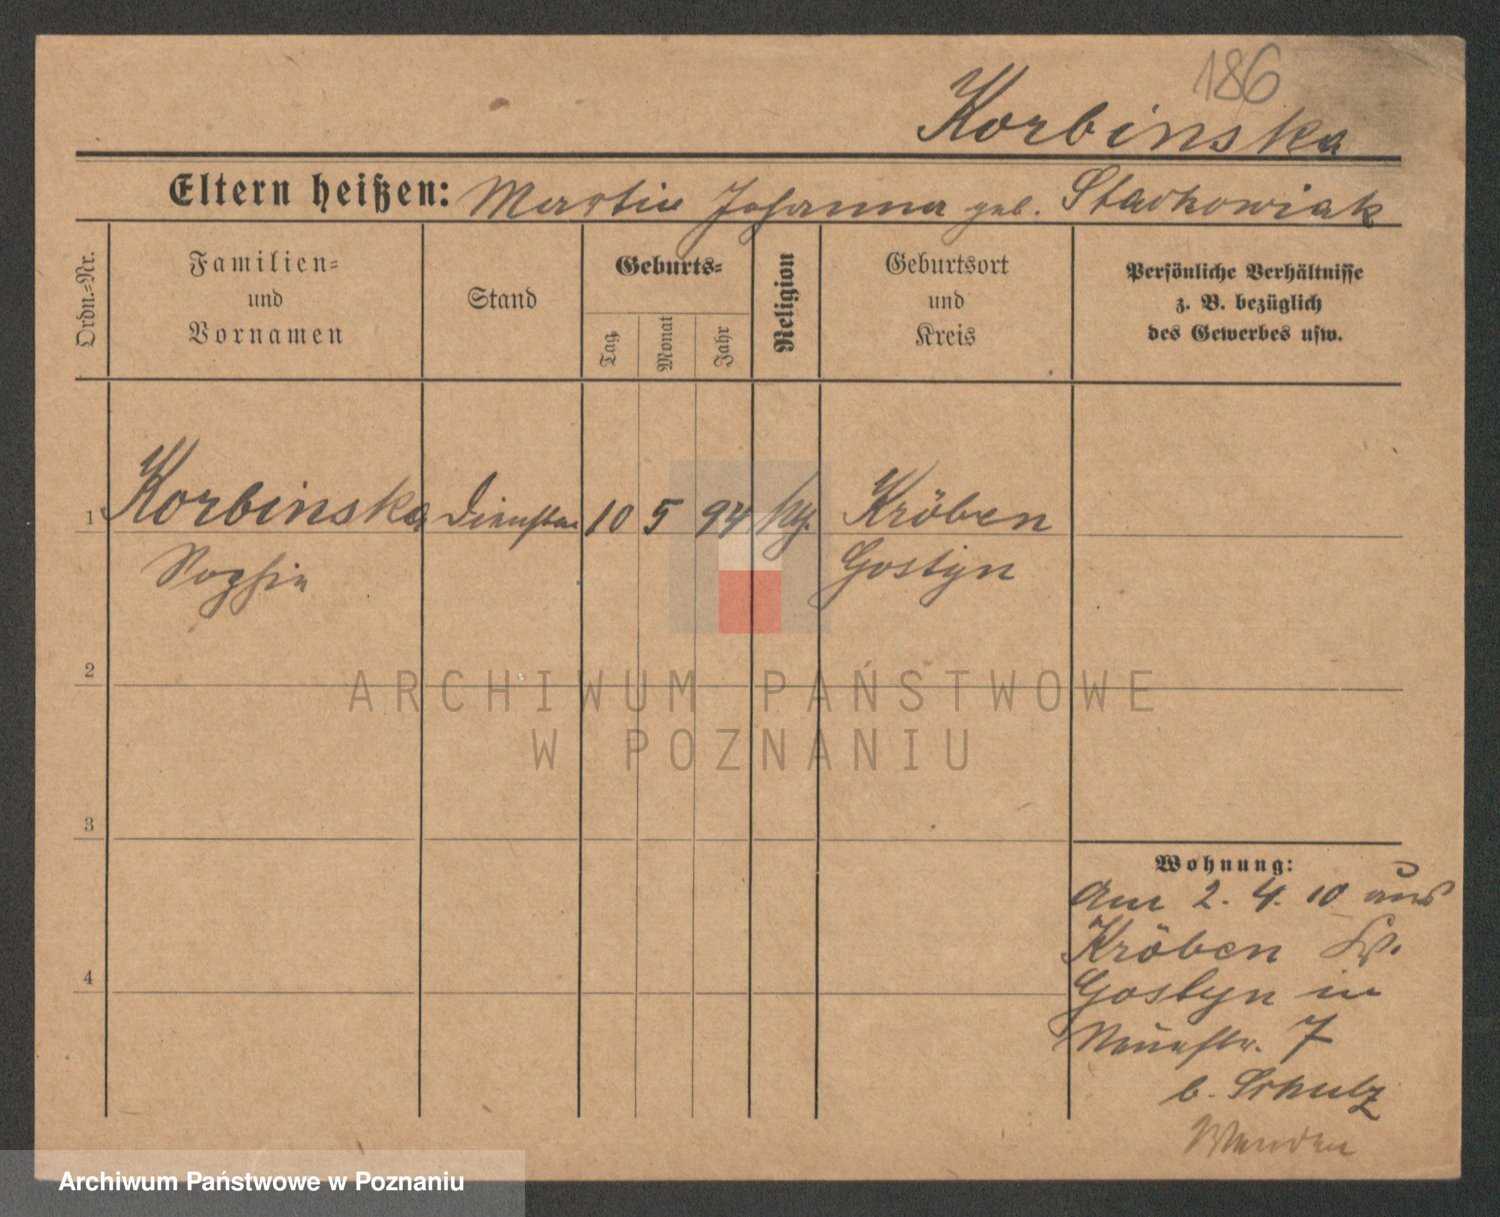 186
Korbinska
Eltern heißen: Martin Johanna geb. Stachowiak
Ordn.-Nr.
Familien-
und
Vornamen
Stand
Geburts-
Tag
Monat
Jahr
Religion
Geburtsort
und
Kreis
Persönliche Verhältnisse
z. B. bezüglich
des Gewerbes usw.
1 Korbinska 10 5 94 Kröben
Sophie Gostyn
2
ARCHIWUM PAŃSTWOWE
W POZNANIU
3
Wohnung:
Am 2. 4. 10 aus
Kröben
4
Gostyn in
7
b. Schulz
Archiwum Państwowe w Poznaniu